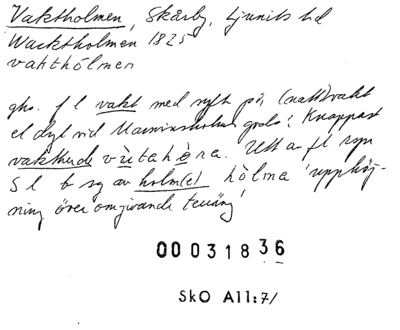 Vaktholmen, Skårby, Ljunits hd
Wacktholmen 1825
vakthólmen
gho. f l vakt med syft på (natt)vakt
el dyl vid grods! Knappast
vakthude vùtahèra. Utt av f l
S l b sg av holm(e) hòlma 'upphöj-
ning över omgivande terräng'
00031836
SkO All:7/